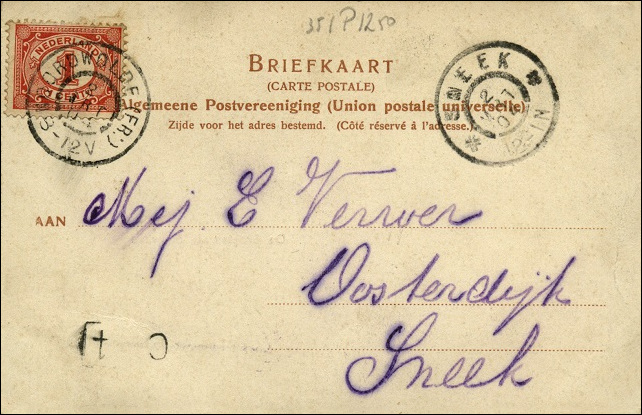 35/P1250
NEDERLAND
1
8-12V
SNEEK
12-1N
BRIEFKAART
(CARTE POSTALE)
Algemeene Postvereeniging (Union postale universelle)
Zijde voor het adres bestemd. (Côté réservé à l'adresse.)
AAN Mej. E Verwer
Oosterdijk
Sneek